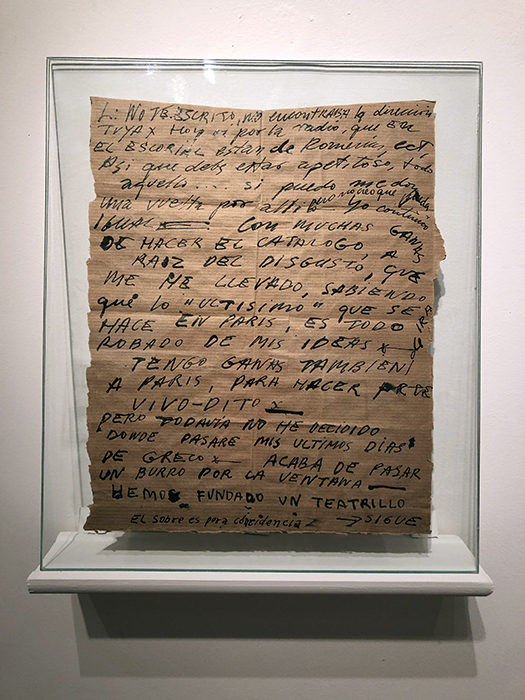 L: NO TE ESCRITO, no encontraba la dirección
TUYA x Hoy por la radio, que EN
EL ESCORIAL están de Romerias, ect,
Asi que debe estar apetitoso, todo
aquello... si puedo me doy
una vuelta por alli no creo que pueda
IGUAL Yo continúo CON MUCHAS GANAS
DE HACER EL CATALOGO, A
RAIZ DEL DISGUSTO, QUE
ME HE LLEVADO, SABIENDO
qué lo "ULTISIMO" QUE SE
HACE EN PARIS, ES TODO
ROBADO DE MIS IDEAS x
TENGO GANAS TAMBIEN
A PARIS, PARA HACER DE
VIVO-DITO x
PERO TODAVIA NO HE DECIDIDO
DONDE PASARE MIS ULTIMOS DIAS
DE GRECO x ACABA DE PASAR
UN BURRO POR LA VENTANA
HEMOS FUNDADO UN TEATRILLO
EL sobre es pora coincidencia → SIGUE